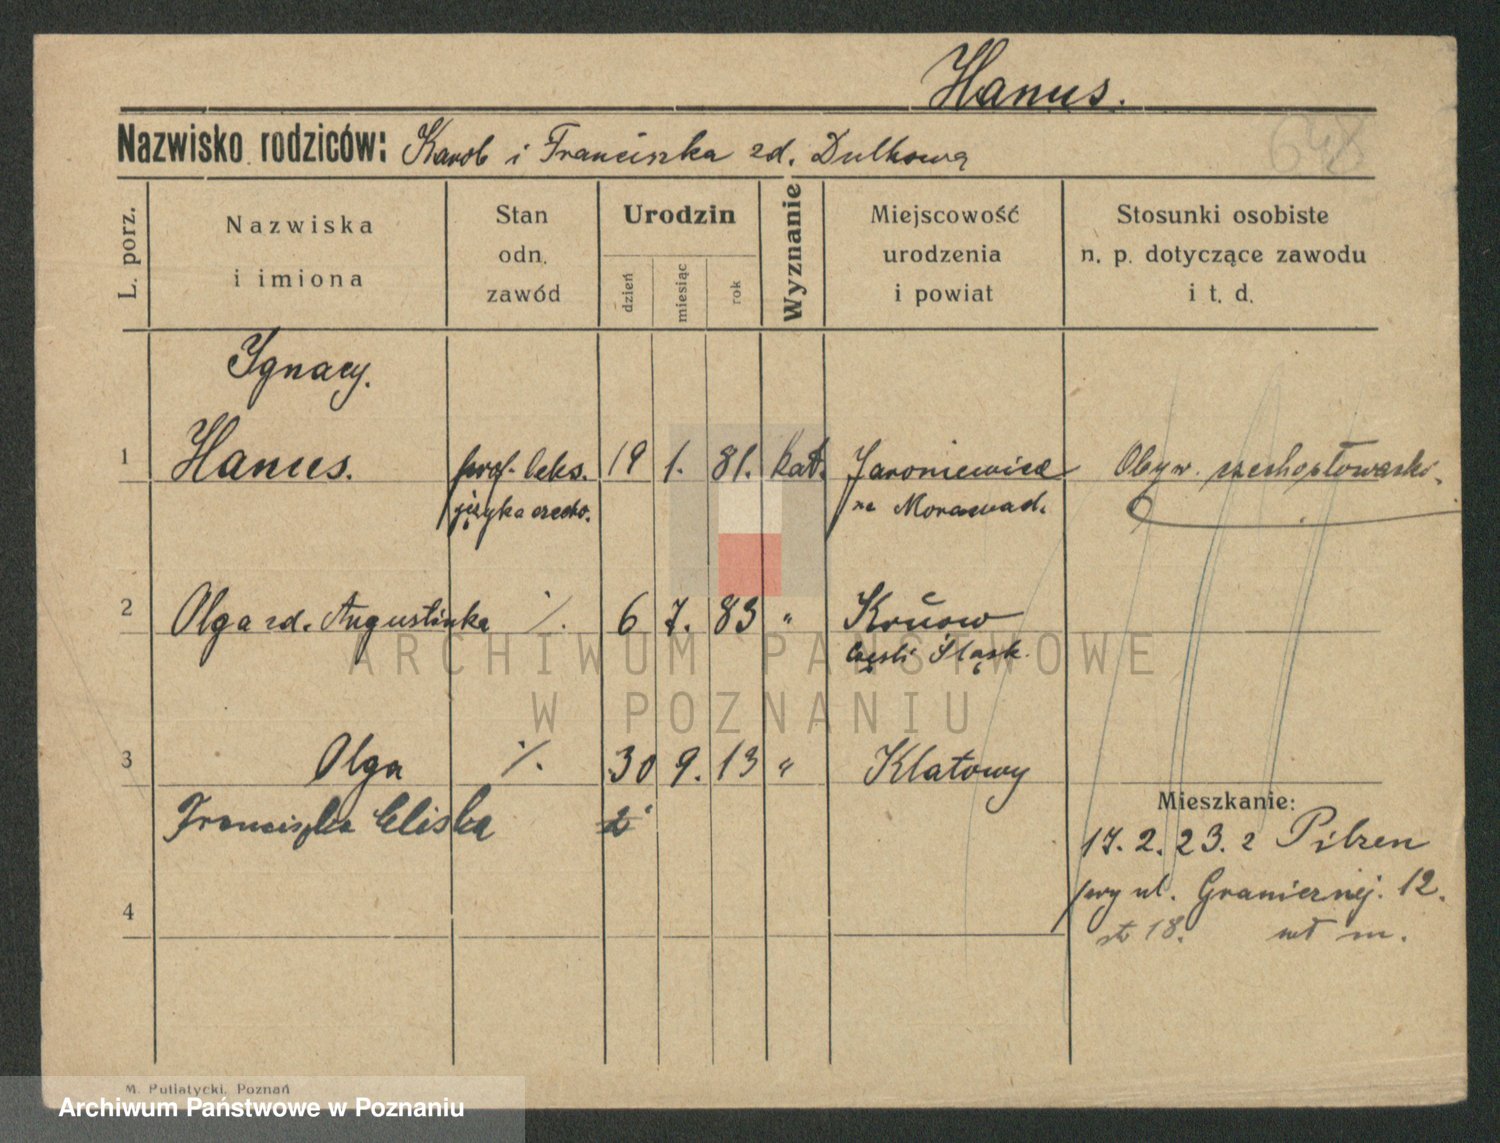 Hanus.
Nazwisko rodziców: Karol i Franciszka zd. Dulkową
648
L. porz.
Nazwiska i imiona
Stan odn. zawód
Urodzin
dzień
miesiąc
rok
Wyznanie
Miejscowość urodzenia i powiat
Stosunki osobiste n. p. dotyczące zawodu i t. d.
Ignacy.
1 Hanus. prof. leks. 19 1. 81. kat. Jaroniewice Obyw. czechosłowacki.
języka czecho. na Morawach.
2 Olga zd. Augustinka ·/. 6 7. 83 " Kručow
Śląsk.
3 Olga ·/. 30 9. 13 " Klatowy
Franciszka Eliska
Mieszkanie:
17. 2. 23. z Pilzen
przy ul. Granicznej. 12.
18. m.
4
ARCHIWUM PAŃSTWOWE
W POZNANIU
M. Putiatycki, Poznań
Archiwum Państwowe w Poznaniu